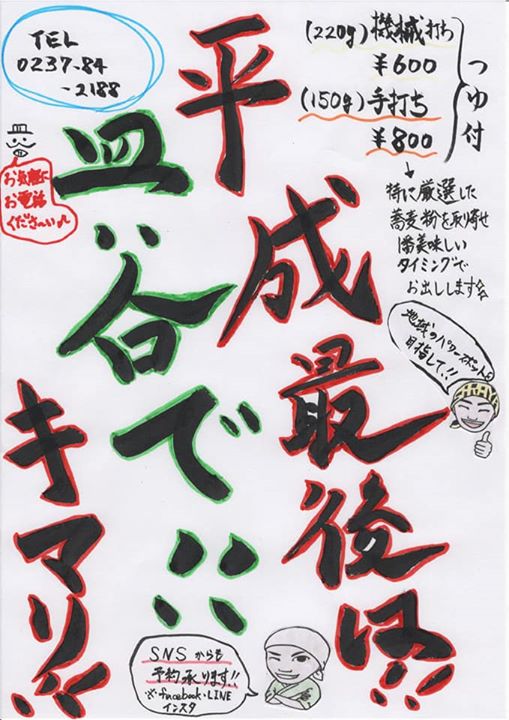 TEL
0237-84
-2188
お気軽に
お電話
くださーい♪
(220g) 機械打ち
¥600
(150g) 手打ち
¥800
つゆ付
特に厳選した
蕎麦粉を取り寄せ
1番美味しい
タイミングで
お出しします
平成最後は!!
皿谷で!!
キマリ!!
地域のパワースポットを
目指して!!
SNSからも
予約承ります!!
※facebook・LINE
インスタ